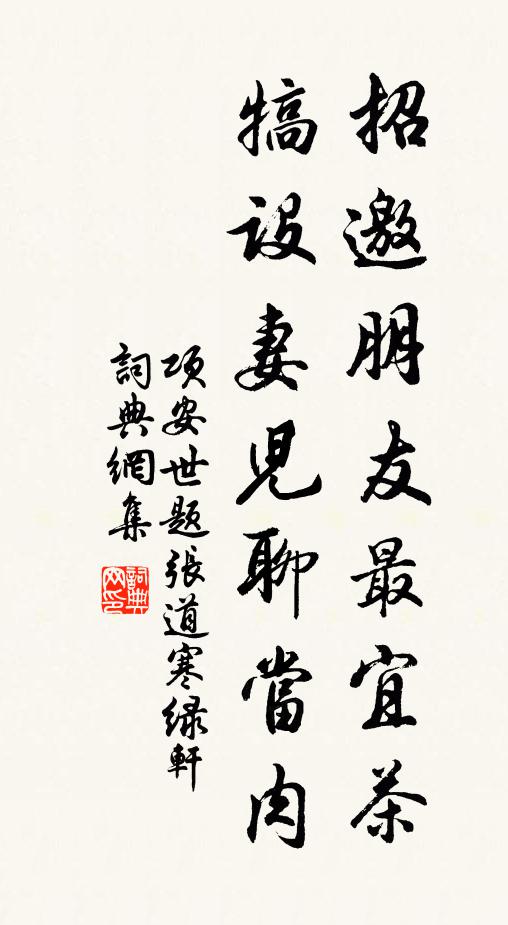 招邀朋友最宜茶
犒設妻兒聊當肉
項安世題張道寒緑軒
詞典網集
詞典
网印